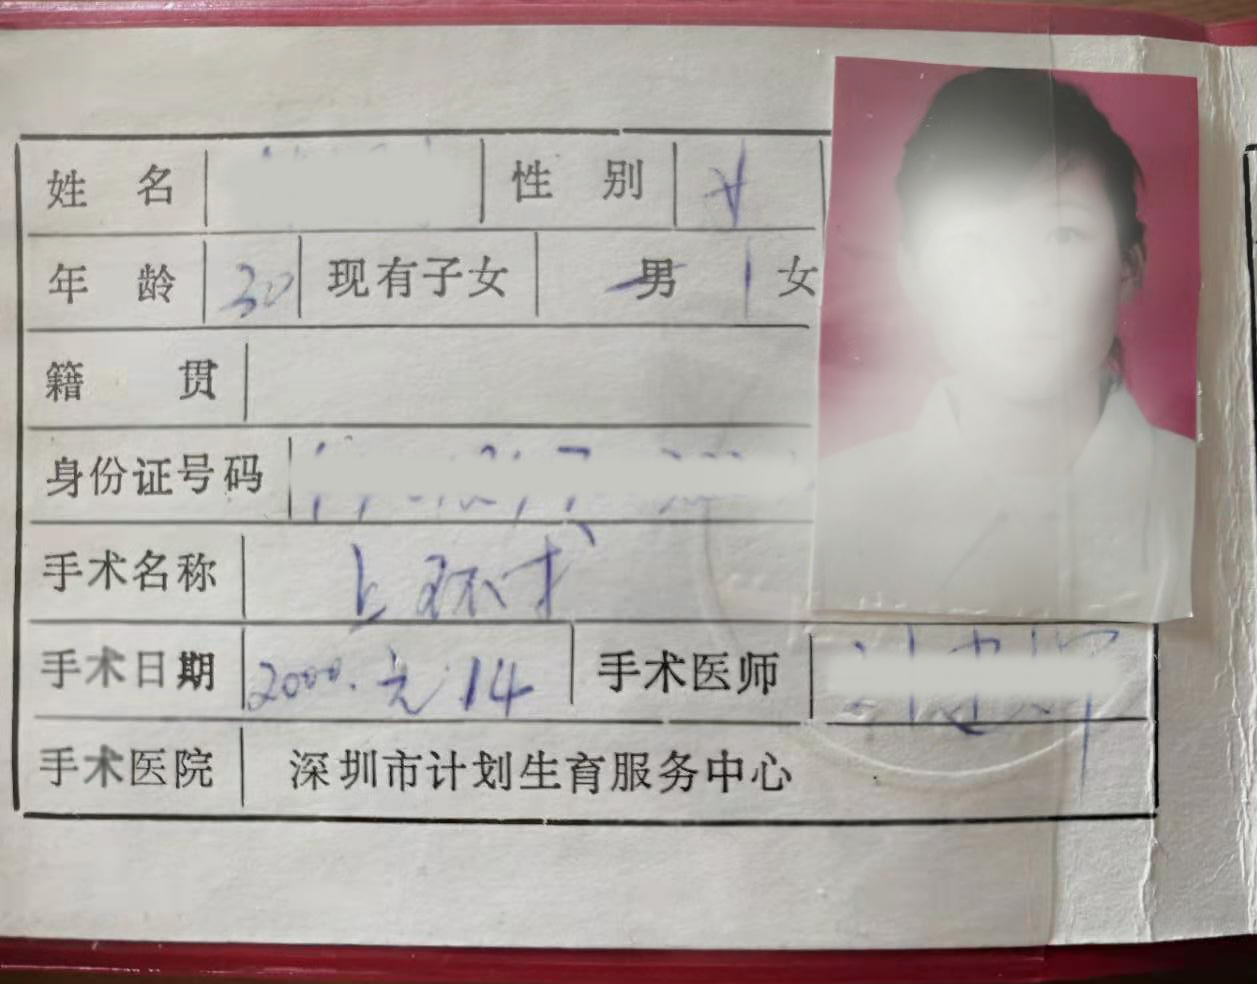 姓 名 性 别 女
年 龄 30 现有子女 一男 1 女
籍 贯
身份证号码
手术名称 上环术
手术日期 2000.元.14 手术医师
手术医院 深圳市计划生育服务中心